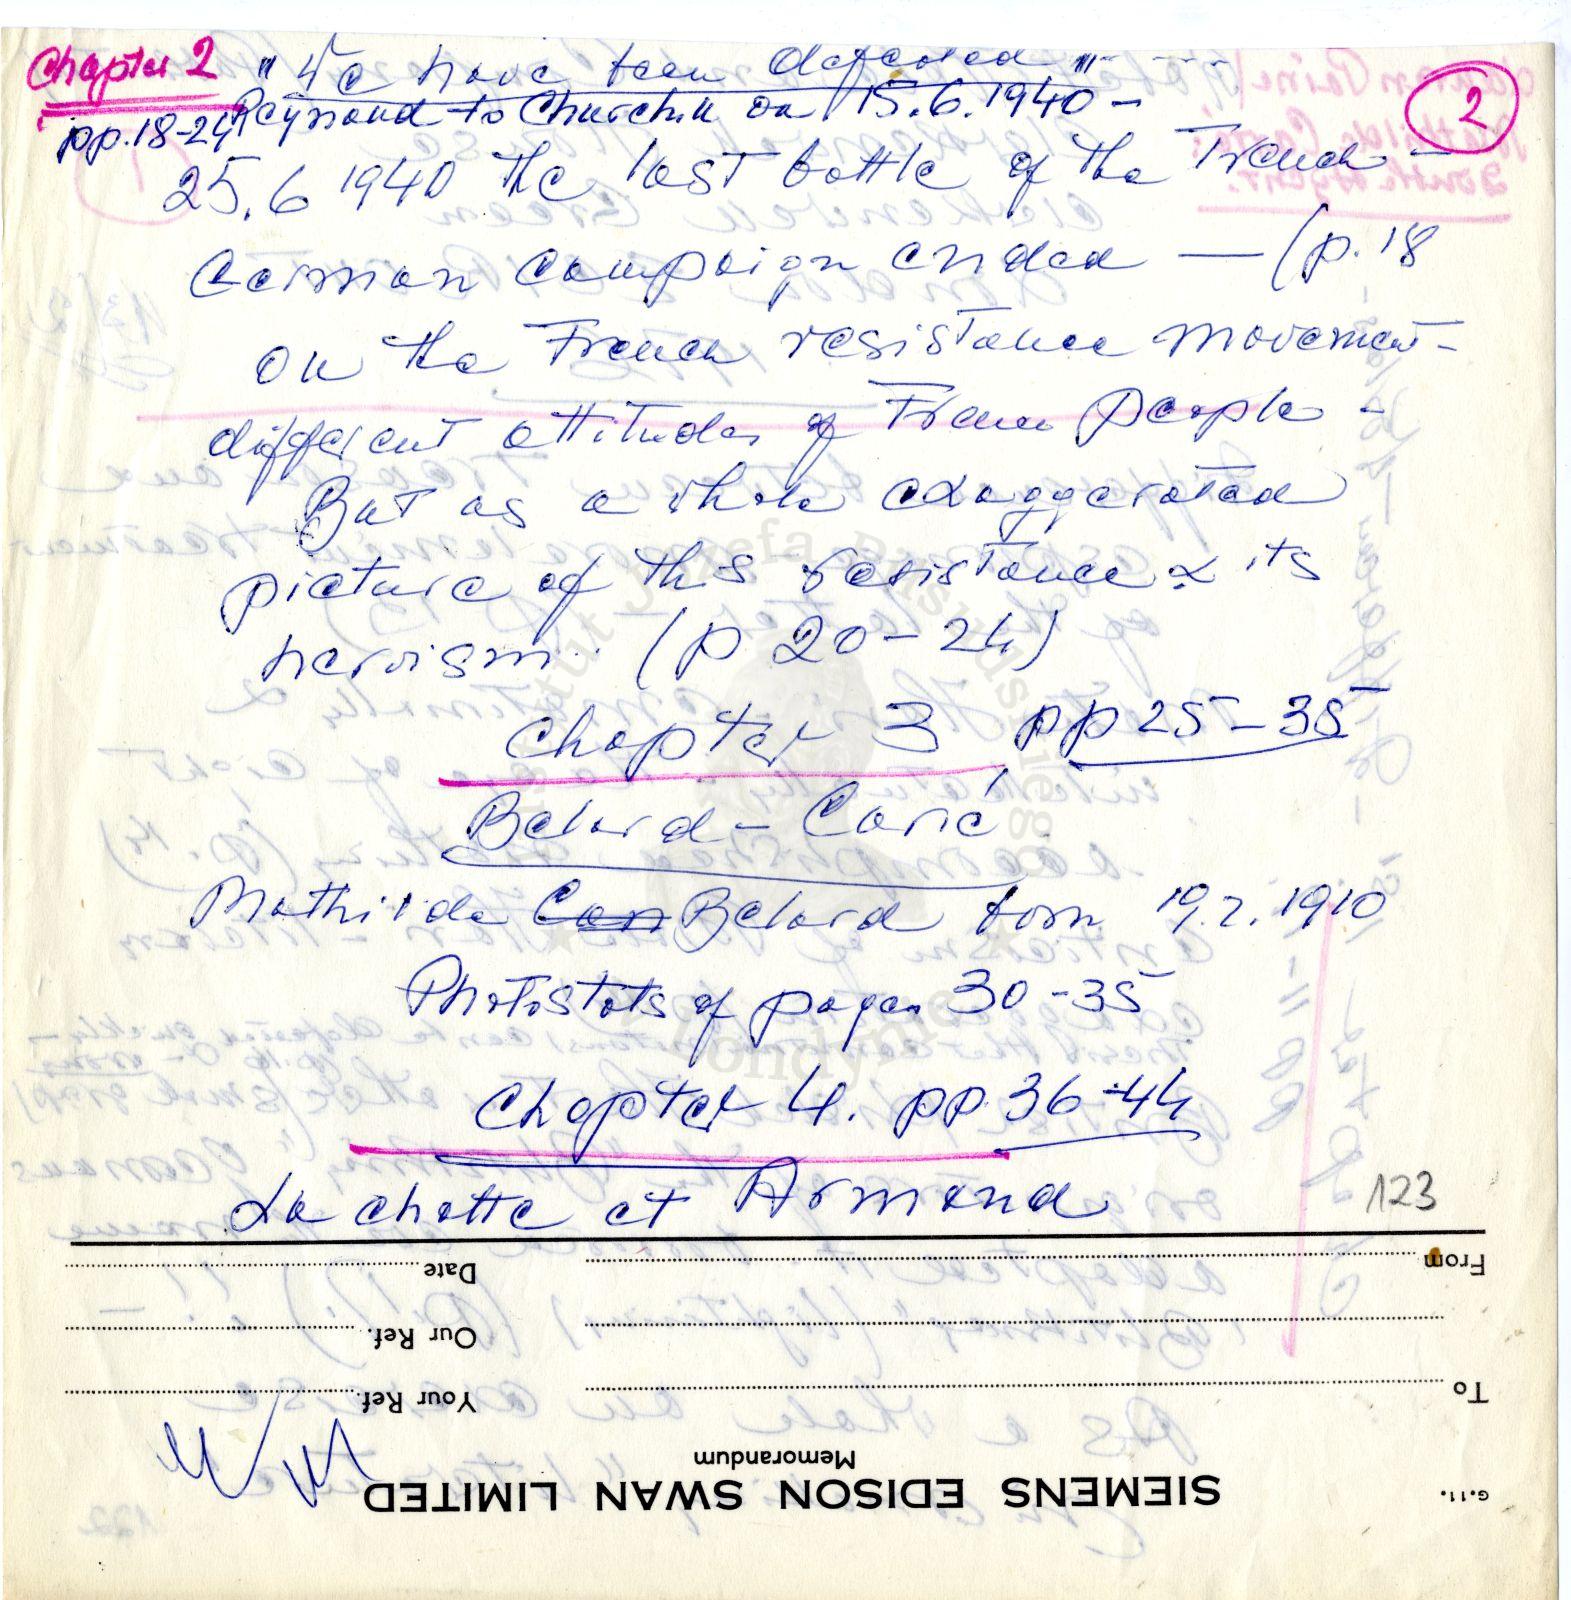 Chapter 2 " We have been defeated "
2
pp. 18-24 Reynaud to Churchill on 15.6.1940 -
25.6 1940 The last battle of the French -
German Campaign ended — (p. 18
on the French resistance movement -
different attitudes of French people -
But as a whole exaggerated
picture of this resistance & its
heroism. (p 20-24)
Chapter 3 pp 25-35
Belard - Carré
Mathilde Belard born 19.2.1910
Photostats of pages 30-35
Chapter 4. pp. 36-44
La chatte et Armand
123
From Date
Our Ref.
To Your Ref.
Memorandum
SIEMENS EDISON SWAN LIMITED
G.11.
Instytut Józefa Piłsudskiego
w Londynie